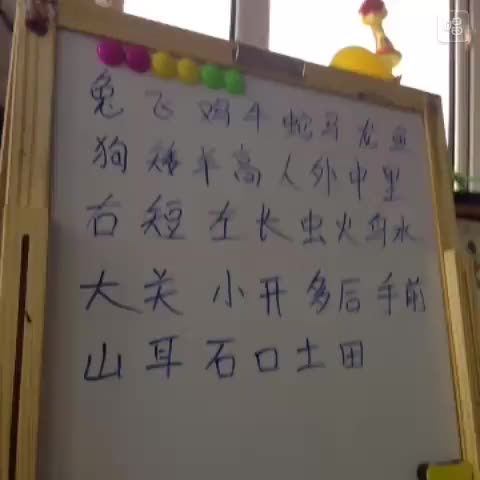 兔飞鸡牛蛇马龙鱼
狗矮羊高人外中里
右短左长虫火鸟水
大关小开多后手前
山耳石口土田